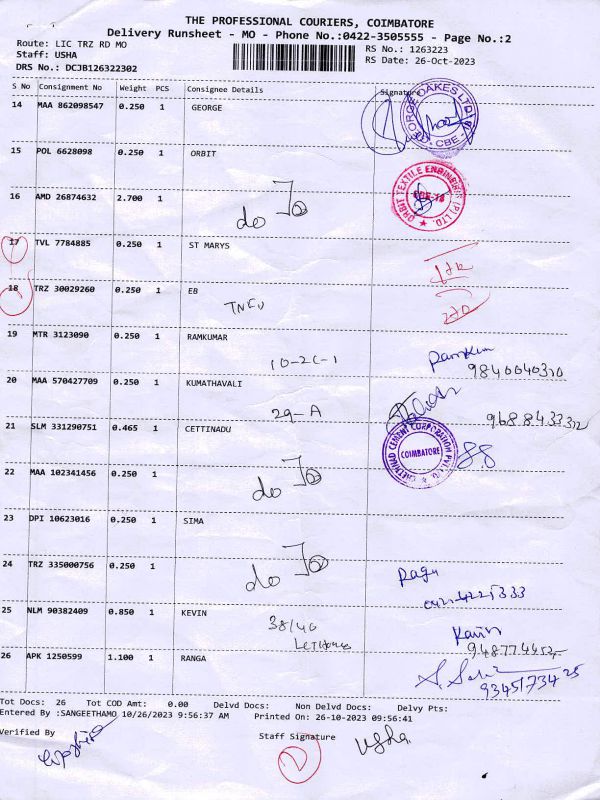 THE PROFESSIONAL COURIERS, COIMBATORE
Delivery Runsheet - MO - Phone No.:0422-3505555 - Page No.:2
Route: LIC TRZ RD MO
RS No.: 1263223
Staff: USHA
RS Date: 26-Oct-2023
DRS No.: DCJB126322302
S No Consignment No Weight PCS Consignee Details Signature
14 MAA 862098547 0.250 1 GEORGE
GEORGE OAKES LTD CBE
15 POL 6628098 0.250 1 ORBIT
ORBIT TEXTILE ENGINEERS (P) LTD. CBE-18
16 AMD 26874632 2.700 1 do
17 TVL 7784885 0.250 1 ST MARYS
18 TRZ 30029260 0.250 1 EB
19 MTR 3123090 0.250 1 RAMKUMAR
10-2C-1
Ramkum
9840040310
20 MAA 570427709 0.250 1 KUMATHAVALI
29-A
21 SLM 331290751 0.465 1 CETTINADU
CHETTINAD CEMENT CORPORATION PVT. LTD. COIMBATORE
22 MAA 102341456 0.250 1 do
23 DPI 10623016 0.250 1 SIMA
24 TRZ 335000756 0.250 1 do
Ragu
0421-4225333
25 NLM 90382409 0.850 1 KEVIN
38/40
Kavin
26 APK 1250599 1.100 1 RANGA
Tot Docs: 26 Tot COD Amt: 0.00 Delvd Docs: Non Delvd Docs: Delvy Pts:
Entered By :SANGEETHAMO 10/26/2023 9:56:37 AM Printed On: 26-10-2023 09:56:41
Verified By
Staff Signature
Usha
2